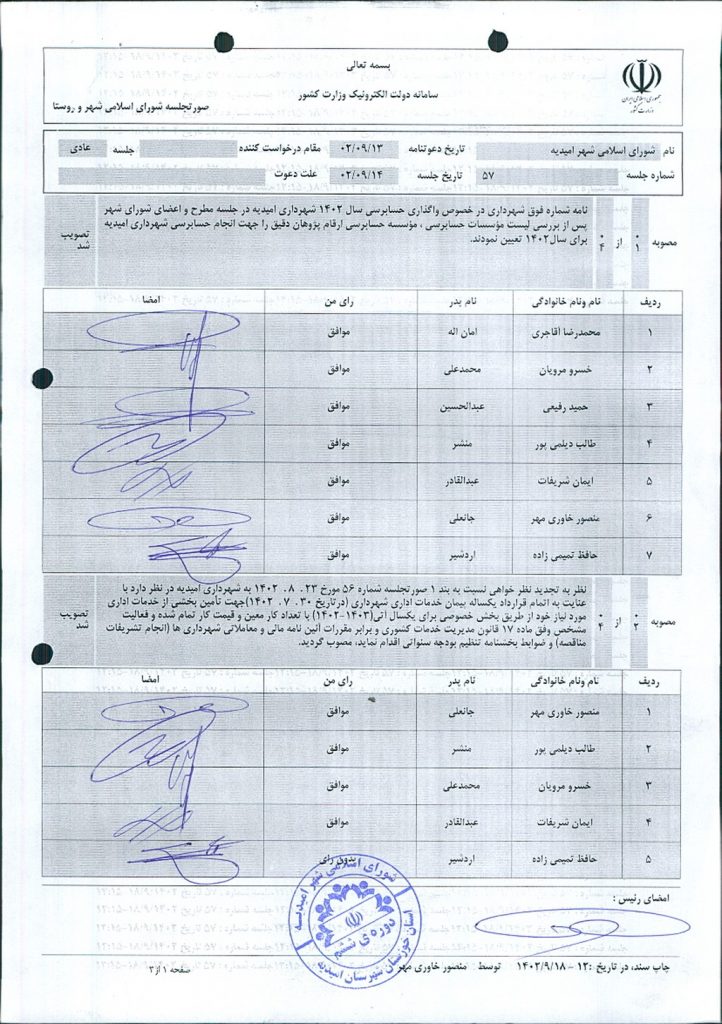 بسمه تعالی
سامانه دولت الکترونیک وزارت کشور
صورتجلسه شورای اسلامی شهر و روستا
جمهوری اسلامی ایران
وزارت کشور
نام شورای اسلامی شهر امیدیه تاریخ دعوتنامه ۰۲/۰۹/۱۳ مقام درخواست کننده جلسه عادی
شماره جلسه ۵۷ تاریخ جلسه ۰۲/۰۹/۱۴ علت دعوت
مصوبه ۰۱ از ۰۴
نامه شماره فوق شهرداری در خصوص واگذاری حسابرسی سال ۱۴۰۲ شهرداری امیدیه در جلسه مطرح و اعضای شورای شهر
پس از بررسی لیست مؤسسات حسابرسی ، مؤسسه حسابرسی ارقام پژوهان دقیق را جهت انجام حسابرسی شهرداری امیدیه
برای سال۱۴۰۲ تعیین نمودند.
تصویب شد
ردیف نام ونام خانوادگی نام پدر رای من امضا
۱ محمدرضا آقاجری امان اله موافق
۲ خسرو مرویان محمدعلی موافق
۳ حمید رفیعی عبدالحسین موافق
۴ طالب دیلمی پور منشر موافق
۵ ایمان شریفات عبدالقادر موافق
۶ منصور خاوری مهر جانعلی موافق
۷ حافظ تمیمی زاده اردشیر موافق
مصوبه ۰۲ از ۰۴
نظر به تجدید نظر خواهی نسبت به بند ۱ صورتجلسه شماره ۵۶ مورخ ۲۳ . ۸ . ۱۴۰۲ به شهرداری امیدیه در نظر دارد با
عنایت به اتمام قرارداد یکساله پیمان خدمات اداری شهرداری (درتاریخ ۳۰ . ۷ . ۱۴۰۲)جهت تأمین بخشی از خدمات اداری
مورد نیاز خود از طریق بخش خصوصی برای یکسال آتی(۱۴۰۳-۱۴۰۲) با تعداد کار معین و قیمت کار تمام شده و فعالیت
مشخص وفق ماده ۱۷ قانون مدیریت خدمات کشوری و برابر مقررات آئین نامه مالی و معاملاتی شهرداری ها (انجام تشریفات
مناقصه) و ضوابط بخشنامه تنظیم بودجه سنواتی اقدام نماید، مصوب گردید.
تصویب شد
ردیف نام ونام خانوادگی نام پدر رای من امضا
۱ منصور خاوری مهر جانعلی موافق
۲ طالب دیلمی پور منشر موافق
۳ خسرو مرویان محمدعلی موافق
۴ ایمان شریفات عبدالقادر موافق
۵ حافظ تمیمی زاده اردشیر بدون رای
امضای رئیس :
شورای اسلامی شهر امیدیه
دوره ی ششم
استان خوزستان شهرستان امیدیه
چاپ سند، در تاریخ :۱۲ - ۱۴۰۲/۹/۱۸ توسط منصور خاوری مهر
صفحه ۱ از ۳